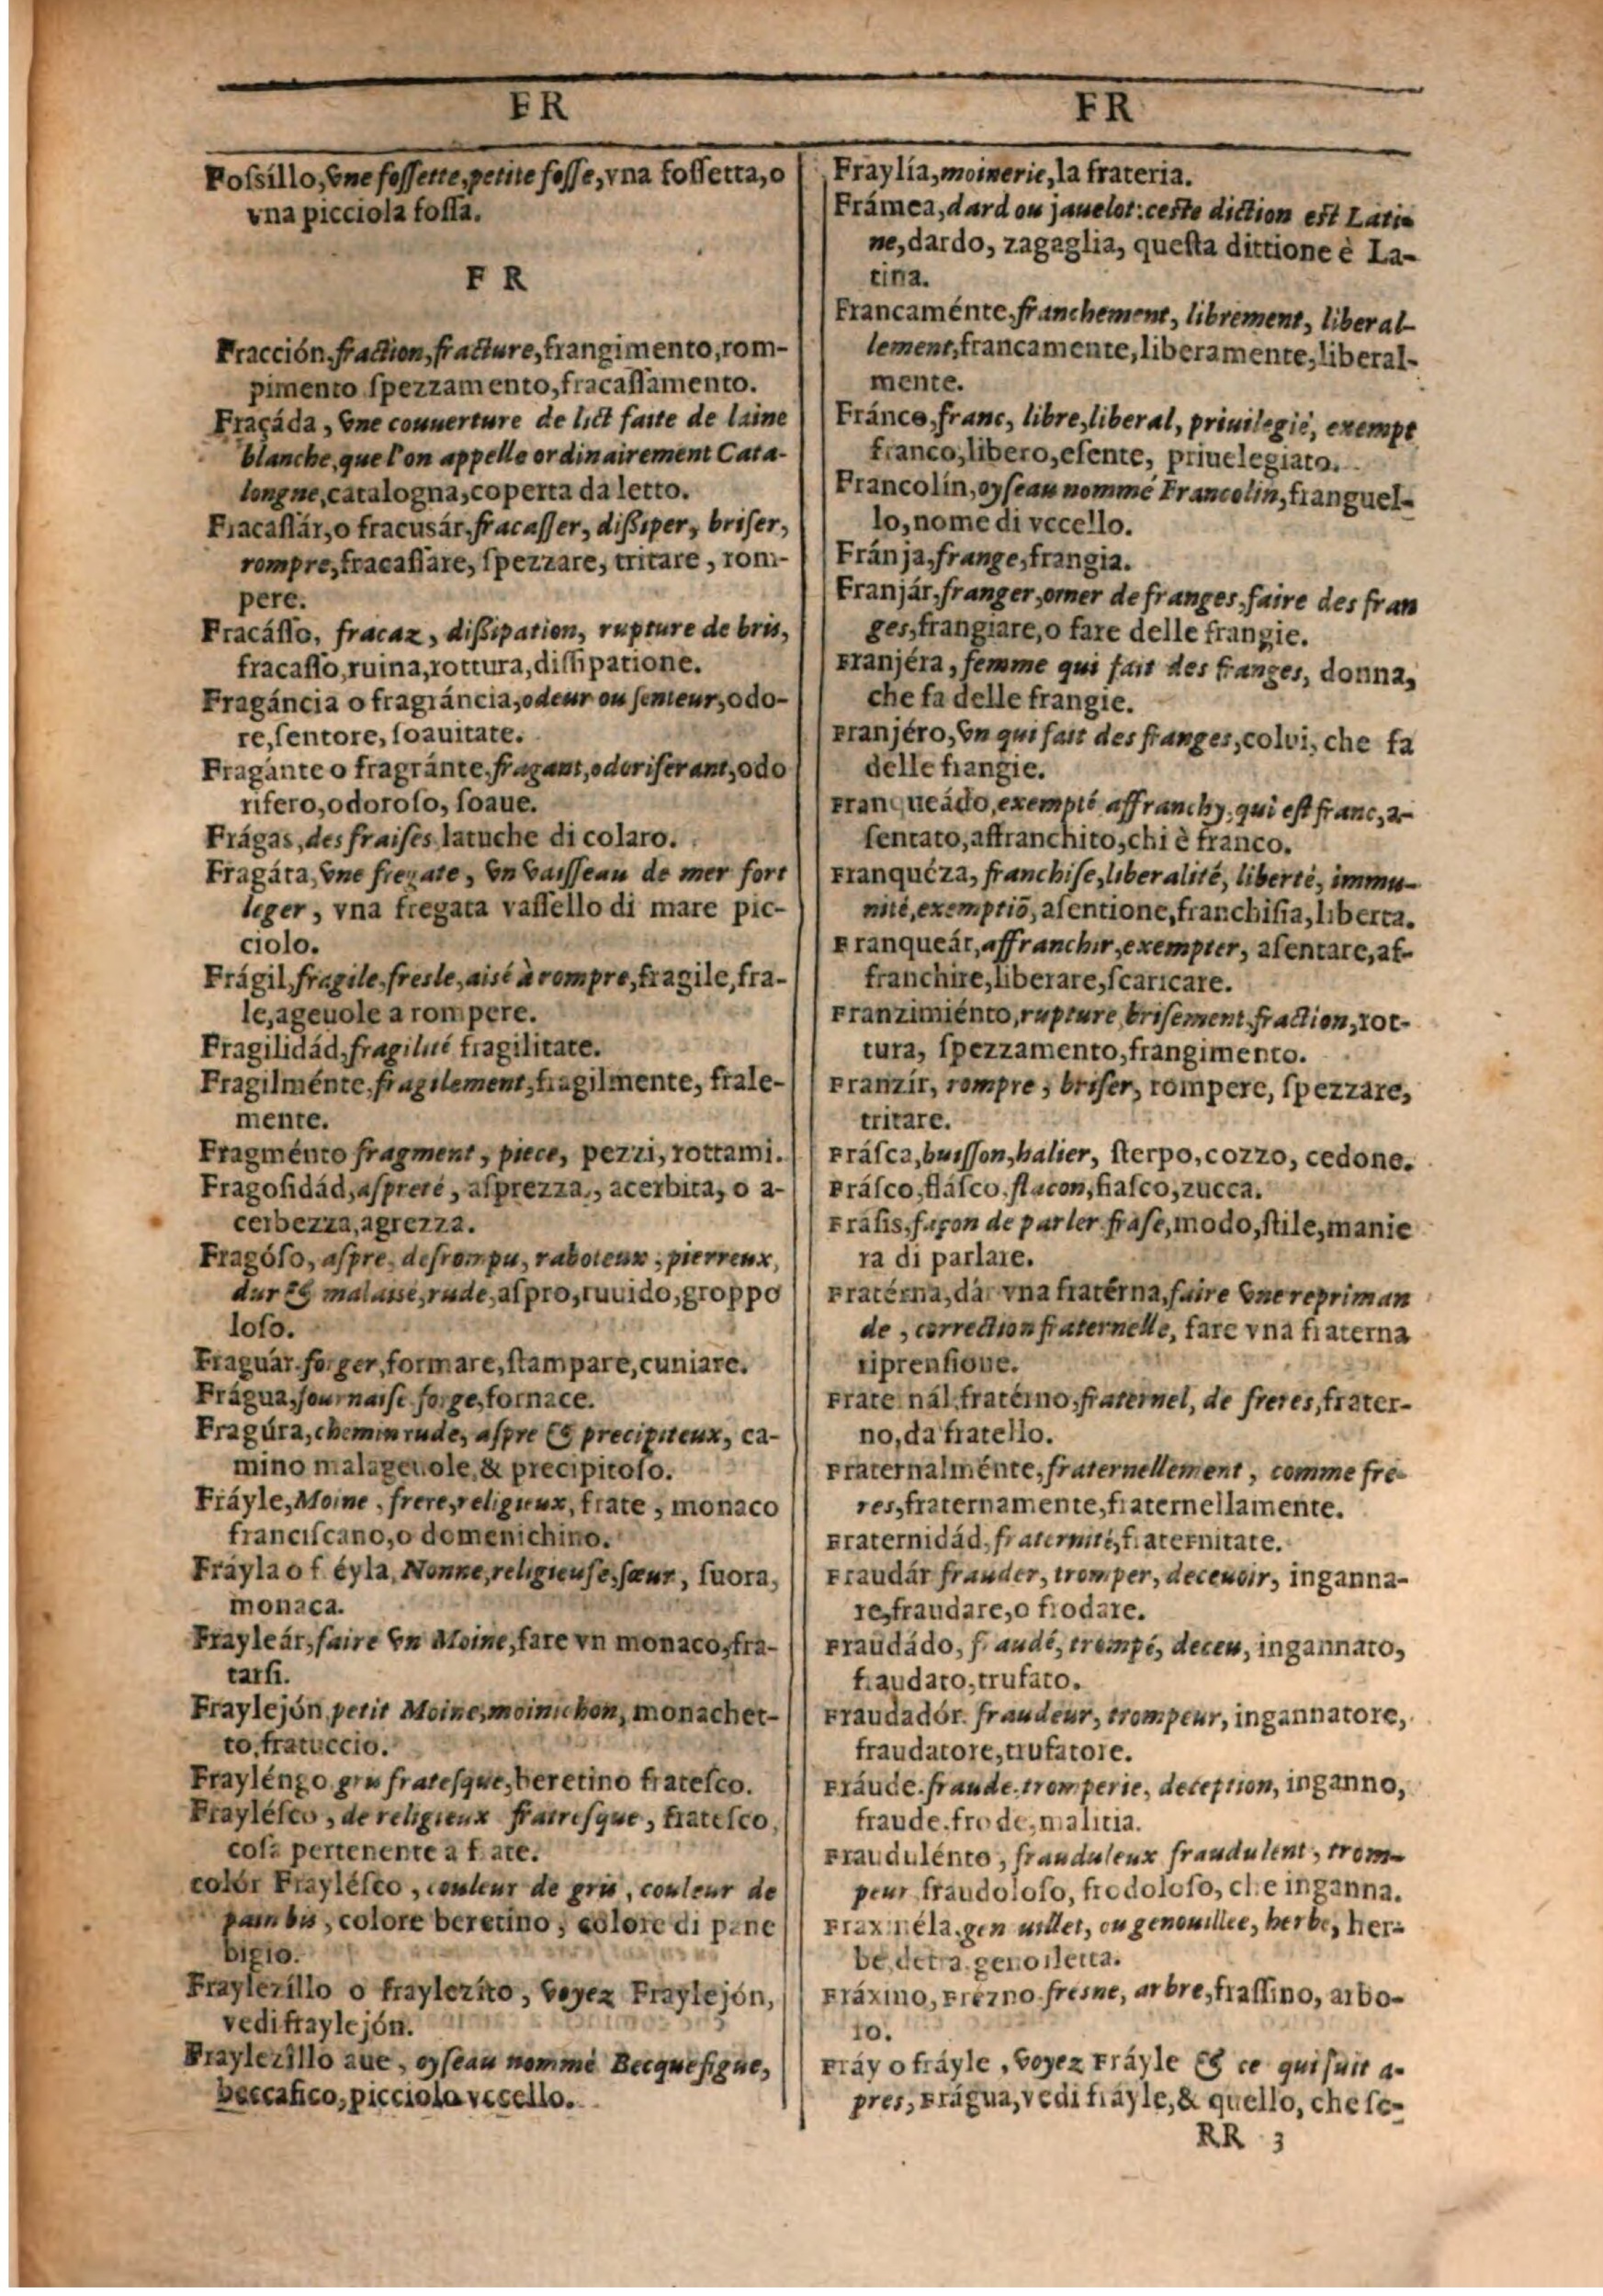 FR
FR
Fossíllo, vne fossette, petite fosse, vna fossetta, o
vna picciola fossa.
F R
Fracción, fraction, fracture, frangimento, rom-
pimento spezzamento, fracassamento.
Fraçáda, vne couuerture de lict faite de laine
blanche, que l'on appelle ordinairement Cata-
longne, catalogna, coperta da letto.
Fracassár, o fracusár, fracasser, dissiper, briser,
rompre, fracassare, spezzare, tritare, rom-
pere.
Fracásso, fracaz, dissipation, rupture de bris,
fracasso, ruina, rottura, dissipatione.
Fragáncia o fragráncia, odeur ou senteur, odo-
re, sentore, soauitate.
Fragánte o fragránte, fragant, odoriferant, odo
rifero, odoroso, soaue.
Frágas, des fraises latuche di colaro.
Fragáta, vne fregate, vn vaisseau de mer fort
leger, vna fregata vassello di mare pic-
ciolo.
Frágil, fragile, fresle, aisé à rompre, fragile, fra-
le, ageuole a rompere.
Fragilidád, fragilité fragilitate.
Fragilménte, fragilement, fragilmente, frale-
mente.
Fragménto fragment, piece, pezzi, rottami.
Fragosidád, aspreté, asprezza, acerbita, o a-
cerbezza, agrezza.
Fragóso, aspre, desrompu, raboteux, pierreux,
dur & malaisé, rude, aspro, ruuido, groppo
loso.
Fraguár. forger, formare, stampare, cuniare.
Frágua, fournaise forge, fornace.
Fragúra, chemin rude, aspre & precipiteux, ca-
mino malageuole, & precipitoso.
Fráyle, Moine, frere, religieux, frate, monaco
franciscano, o domenichino.
Fráyla o fréyla, Nonne, religieuse, sœur, suora,
monaca.
Frayleár, faire vn Moine, fare vn monaco, fra-
tarsi.
Fraylejón petit Moine, moinichon, monachet-
to, fratuccio.
Frayléngo gris fratesque, beretino fratesco.
Fraylésco, de religieux fratresque, fratesco,
cosa pertenente a frate.
colór Fraylésco, couleur de gris, couleur de
pain bis, colore beretino, colore di pane
bigio.
Fraylezíllo o fraylezíto, voyez Fraylejón,
vedi fraylejón.
Fraylezíllo aue, oyseau nommé Becquefigue,
beccafico, picciolo vccello.
Fraylía, moinerie, la frateria.
Frámea, dard ou jauelot: ceste diction est Lati-
ne, dardo, zagaglia, questa dittione è La-
tina.
Francaménte, franchement, librement, liberal-
lement, francamente, liberamente, liberal-
mente.
Fránco, franc, libre, liberal, priuilegié, exempt
franco, libero, esente, priuelegiato.
Francolín, oyseau nommé Francolin, franguel-
lo, nome di vccello.
Fránja, frange, frangia.
Franjár, franger, orner de franges, faire des fran
ges, frangiare, o fare delle frangie.
Franjéra, femme qui fait des franges, donna,
che fa delle frangie.
Franjéro, vn qui fait des franges, colui, che fa
delle frangie.
Franqueádo, exempté affranchy, qui est franc, a-
sentato, affranchito, chi è franco.
Franquéza, franchise, liberalité, liberté, immu-
nité, exemptiõ, asentione, franchisia, liberta.
Franqueár, affranchir, exempter, asentare, af-
franchire, liberare, scaricare.
Franzimiénto, rupture, brisement, fraction, rot-
tura, spezzamento, frangimento.
Franzír, rompre, briser, rompere, spezzare,
tritare.
Frásca, buisson, halier, sterpo, cozzo, cedone.
Frásco, flásco, flacon, fiasco, zucca.
Frásis, façon de parler frase, modo, stile, manie
ra di parlare.
Fratérna, dár vna fratérna, faire vne repriman
de, correction fraternelle, fare vna fraterna
riprensione.
Fraternál, fratérno, fraternel, de freres, frater-
no, da fratello.
Fraternalménte, fraternellement, comme fre-
res, fraternamente, fraternellamente.
Fraternidád, fraternité, fraternitate.
Fraudár frauder, tromper, deceuoir, inganna-
re, fraudare, o frodare.
Fraudádo, fraudé, trompé, deceu, ingannato,
fraudato, trufato.
Fraudadór. fraudeur, trompeur, ingannatore,
fraudatore, trufatore.
Fráude. fraude, tromperie, deception, inganno,
fraude, frode, malitia.
Fraudulénto, frauduleux fraudulent, trom-
peur fraudoloso, frodoloso, che inganna.
Fraxinéla, genouillet, ou genouillee, herbe, her-
be detta genoilletta.
Fráxino, Frézno fresne, arbre, frassino, arbo-
ro.
Fráy o fráyle, voyez Fráyle & ce qui suit a-
pres, Frágua, vedi fráyle, & quello, che se-
RR 3